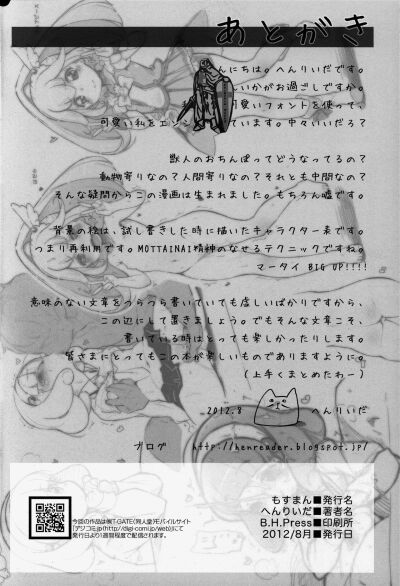 あとがき
んにちは。へんりいだです。
いかがお過ごしですか。
可愛いフォントを使って、
可愛い私をエンジ
ています。中々いいだろ？
獣人のおちんぽってどうなってるの？
動物寄りなの？人間寄りなの？それとも中間なの？
そんな疑問からこの漫画は生まれました。もちろん嘘です。
背景の絵は、試し書きした時に描いたキャラクター表です。
つまり再利用です。MOTTAINAI精神のなせるテクニックですね。
マータイ BIG UP!!!!
意味のない文章をつらつら書いていても虚しいばかりですから、
この辺にして置きましょう。でもそんな文章こそ、
書いている時はとっても楽しかったりします。
皆さまにとってもこの本が楽しいものでありますように。
(上手くまとめたわー)
2012.8
へんりいだ
ブログ http://henreader.blogspot.jp/
今回の作品は㈱T-GATE(同人堂)モバイルサイト
「デジコミ.jp(http://digi-comi.jp/web)」にて
発行日より1週間程度で配信されます。
もすまん■発行名
へんりいだ■著者名
B.H.Press■印刷所
2012/8月■発行日